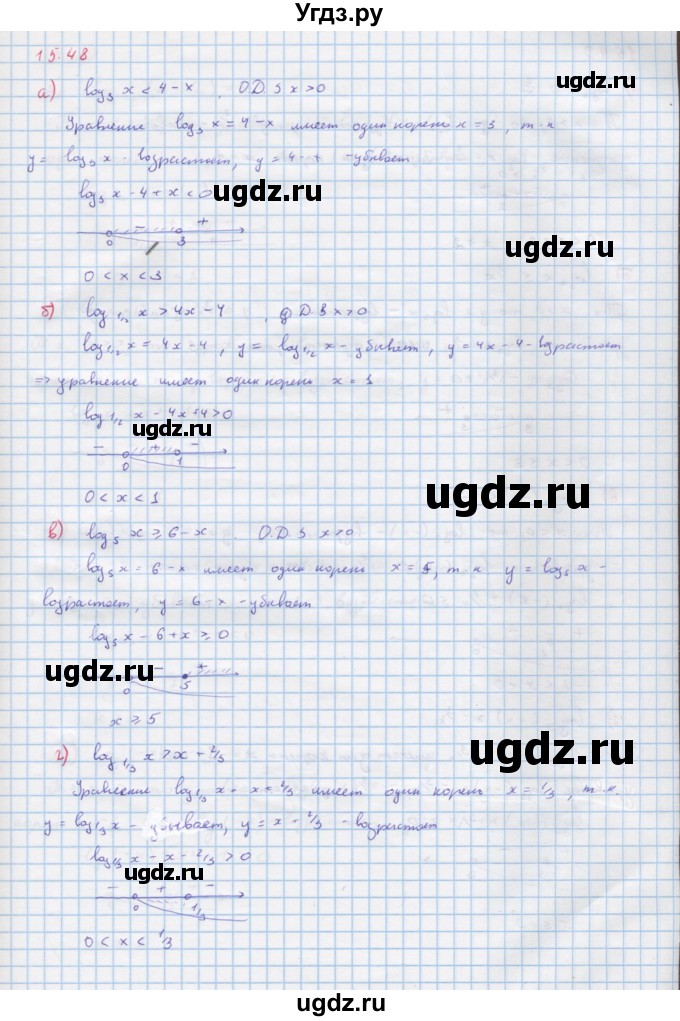 Угдз.ру
15.48
а) log₃ x < 4 - x . О.Д.З x > 0
Уравнение log₃ x = 4 - x имеет один корень x = 3, т.к
y = log₃ x - возрастает, y = 4 - x - убывает
log₃ x - 4 + x < 0
ugdz.ru
- +
0 3
0 < x < 3
б) log 1/2 x > 4x - 4 , О.Д.З x > 0
ugdz.ru
log 1/2 x = 4x - 4 , y = log 1/2 x - убывает, y = 4x - 4 - возрастает
=> уравнение имеет один корень x = 1
log 1/2 x - 4x + 4 > 0
ugdz.ru
- + -
0 1
0 < x < 1
ugdz.ru
в) log₅ x ≥ 6 - x . О.Д.З x > 0
ugdz.ru
log₅ x = 6 - x имеет один корень x = 5, т.к y = log₅ x -
возрастает, y = 6 - x - убывает
log₅ x - 6 + x ≥ 0
ugdz.ru
- +
0 5
x ≥ 5
г) log 1/3 x > x + 2/3
ugdz.ru
Уравнение log 1/3 x = x + 2/3 имеет один корень x = 1/3, т.к.
y = log 1/3 x - убывает, y = x - 2/3 - возрастает
ugdz.ru
log 1/3 x - x - 2/3 > 0
ugdz.ru
- + -
0 1/3
0 < x < 1/3
ugdz.ru